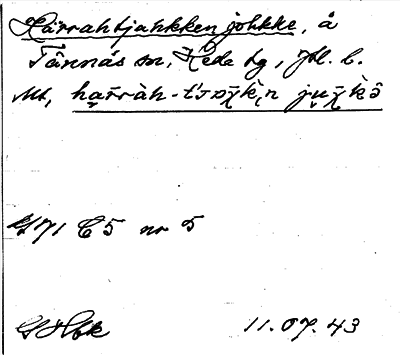 Härrahtjahkken johkke, å
Tännäs sn, Hede tg, Jtl. l.
Ut, ha̮r̄ràh-t'sɒχ̄k̀ən ju̮χ̄k̀ə̂
G 71 C 5 nr 5
11.07.43